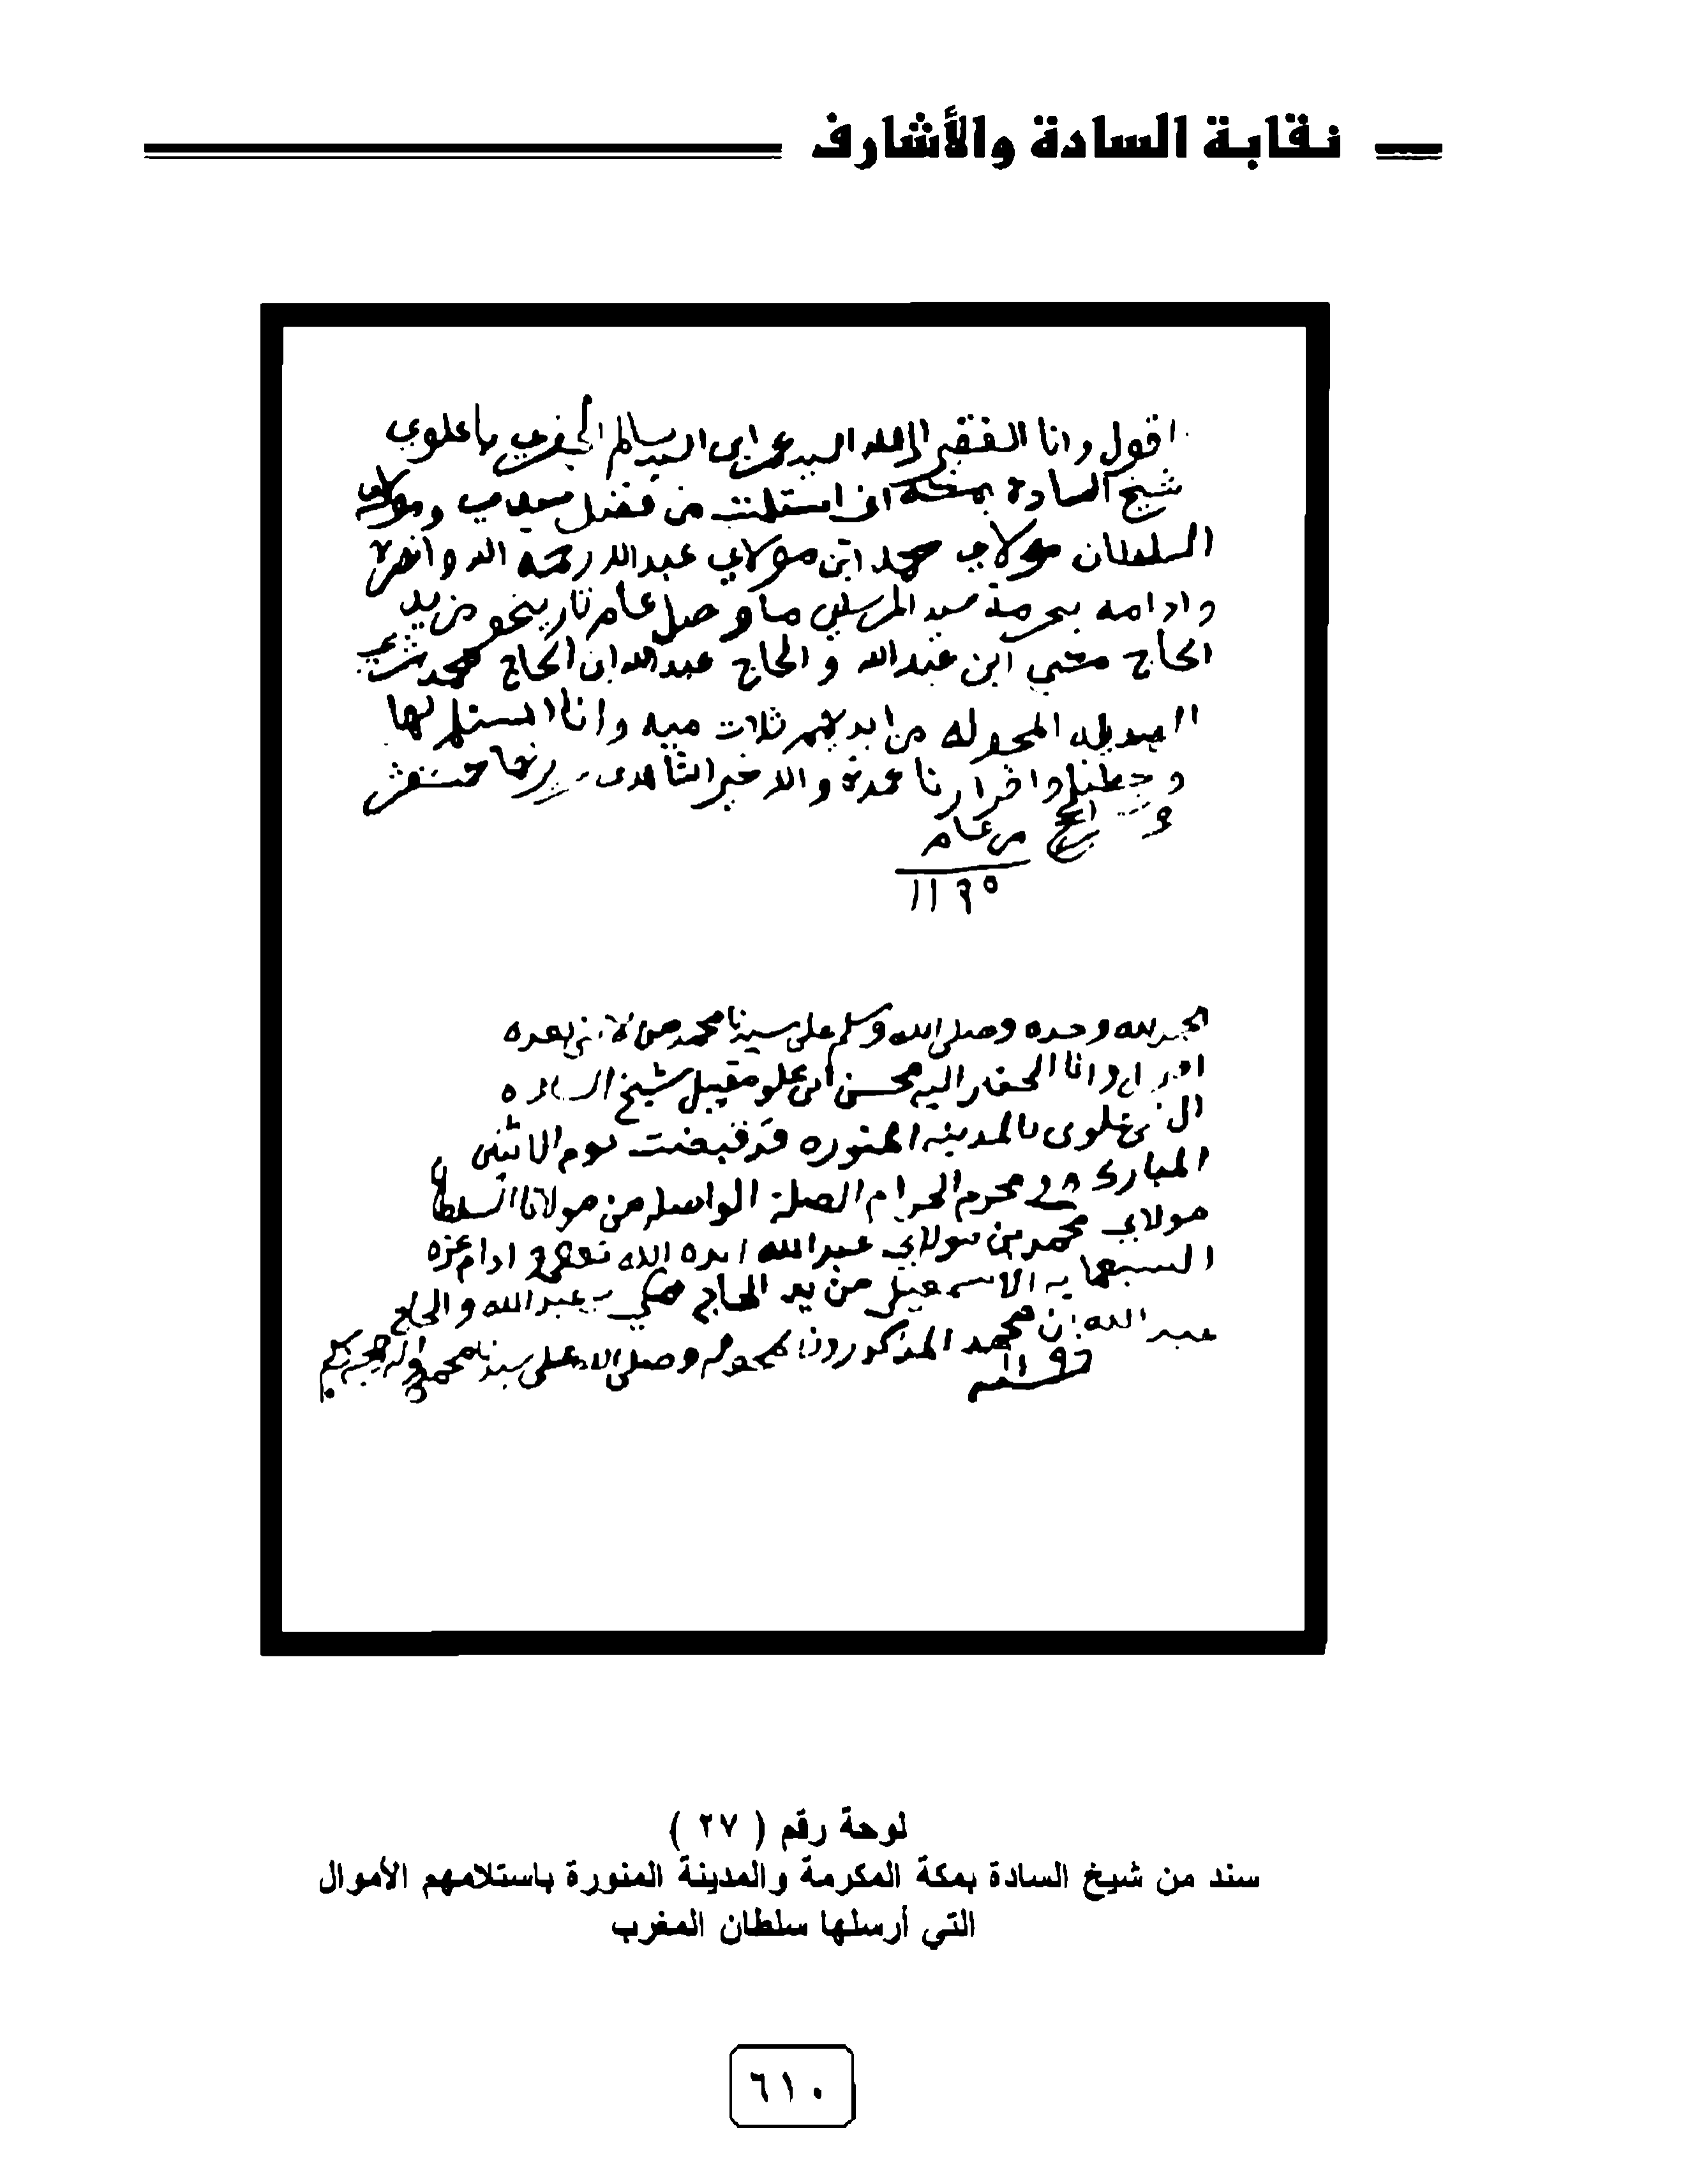 نقابة السادة والأشارف
اقول وانا الفقير الى الله السيد عمر ابن السيد سالم الجفري باعلوي
شيخ السادة بمكة اني استلمت من فضل سيدي ومولاي
السلطان مولاي محمد ابن مولاي عبد الله رحمه الله و
وادامه بحرمة سيد المرسلين ما وصل عام تاريخه من يد
الحاج مكي ابن عبد الله و الحاج عبد الله ابن الحاج محمد
المحوله من ثلاث ميه وانا المستلم لها
و اقرارنا عمدة
و من عام
١١٩٥
الحمد لله وحده وصلى الله وسلم على سيدنا محمد من لا نبي بعده
وانا الحقير اليه محسن ابن علو مقيبل شيخ الساده
ال علوى بالمدينه المنوره قد قبضت يوم الاثنين
المبارك محرم الحرام الصلة الواصله من مولانا السلطان
مولاي محمد بن مولاي عبد الله ايده الله ادام عزه
من يد الحاج مكي بن عبد الله و الحاج
عبد الله بن محمد المذكورون وصلى الله على سيدنا محمد واله وصحبه
١١٩٦
لوحة رقم ( ٢٧ )
سند من شيخ السادة بمكة المكرمة والمدينة المنورة باستلامهم الأموال
التي أرسلها سلطان المغرب
٦١٠